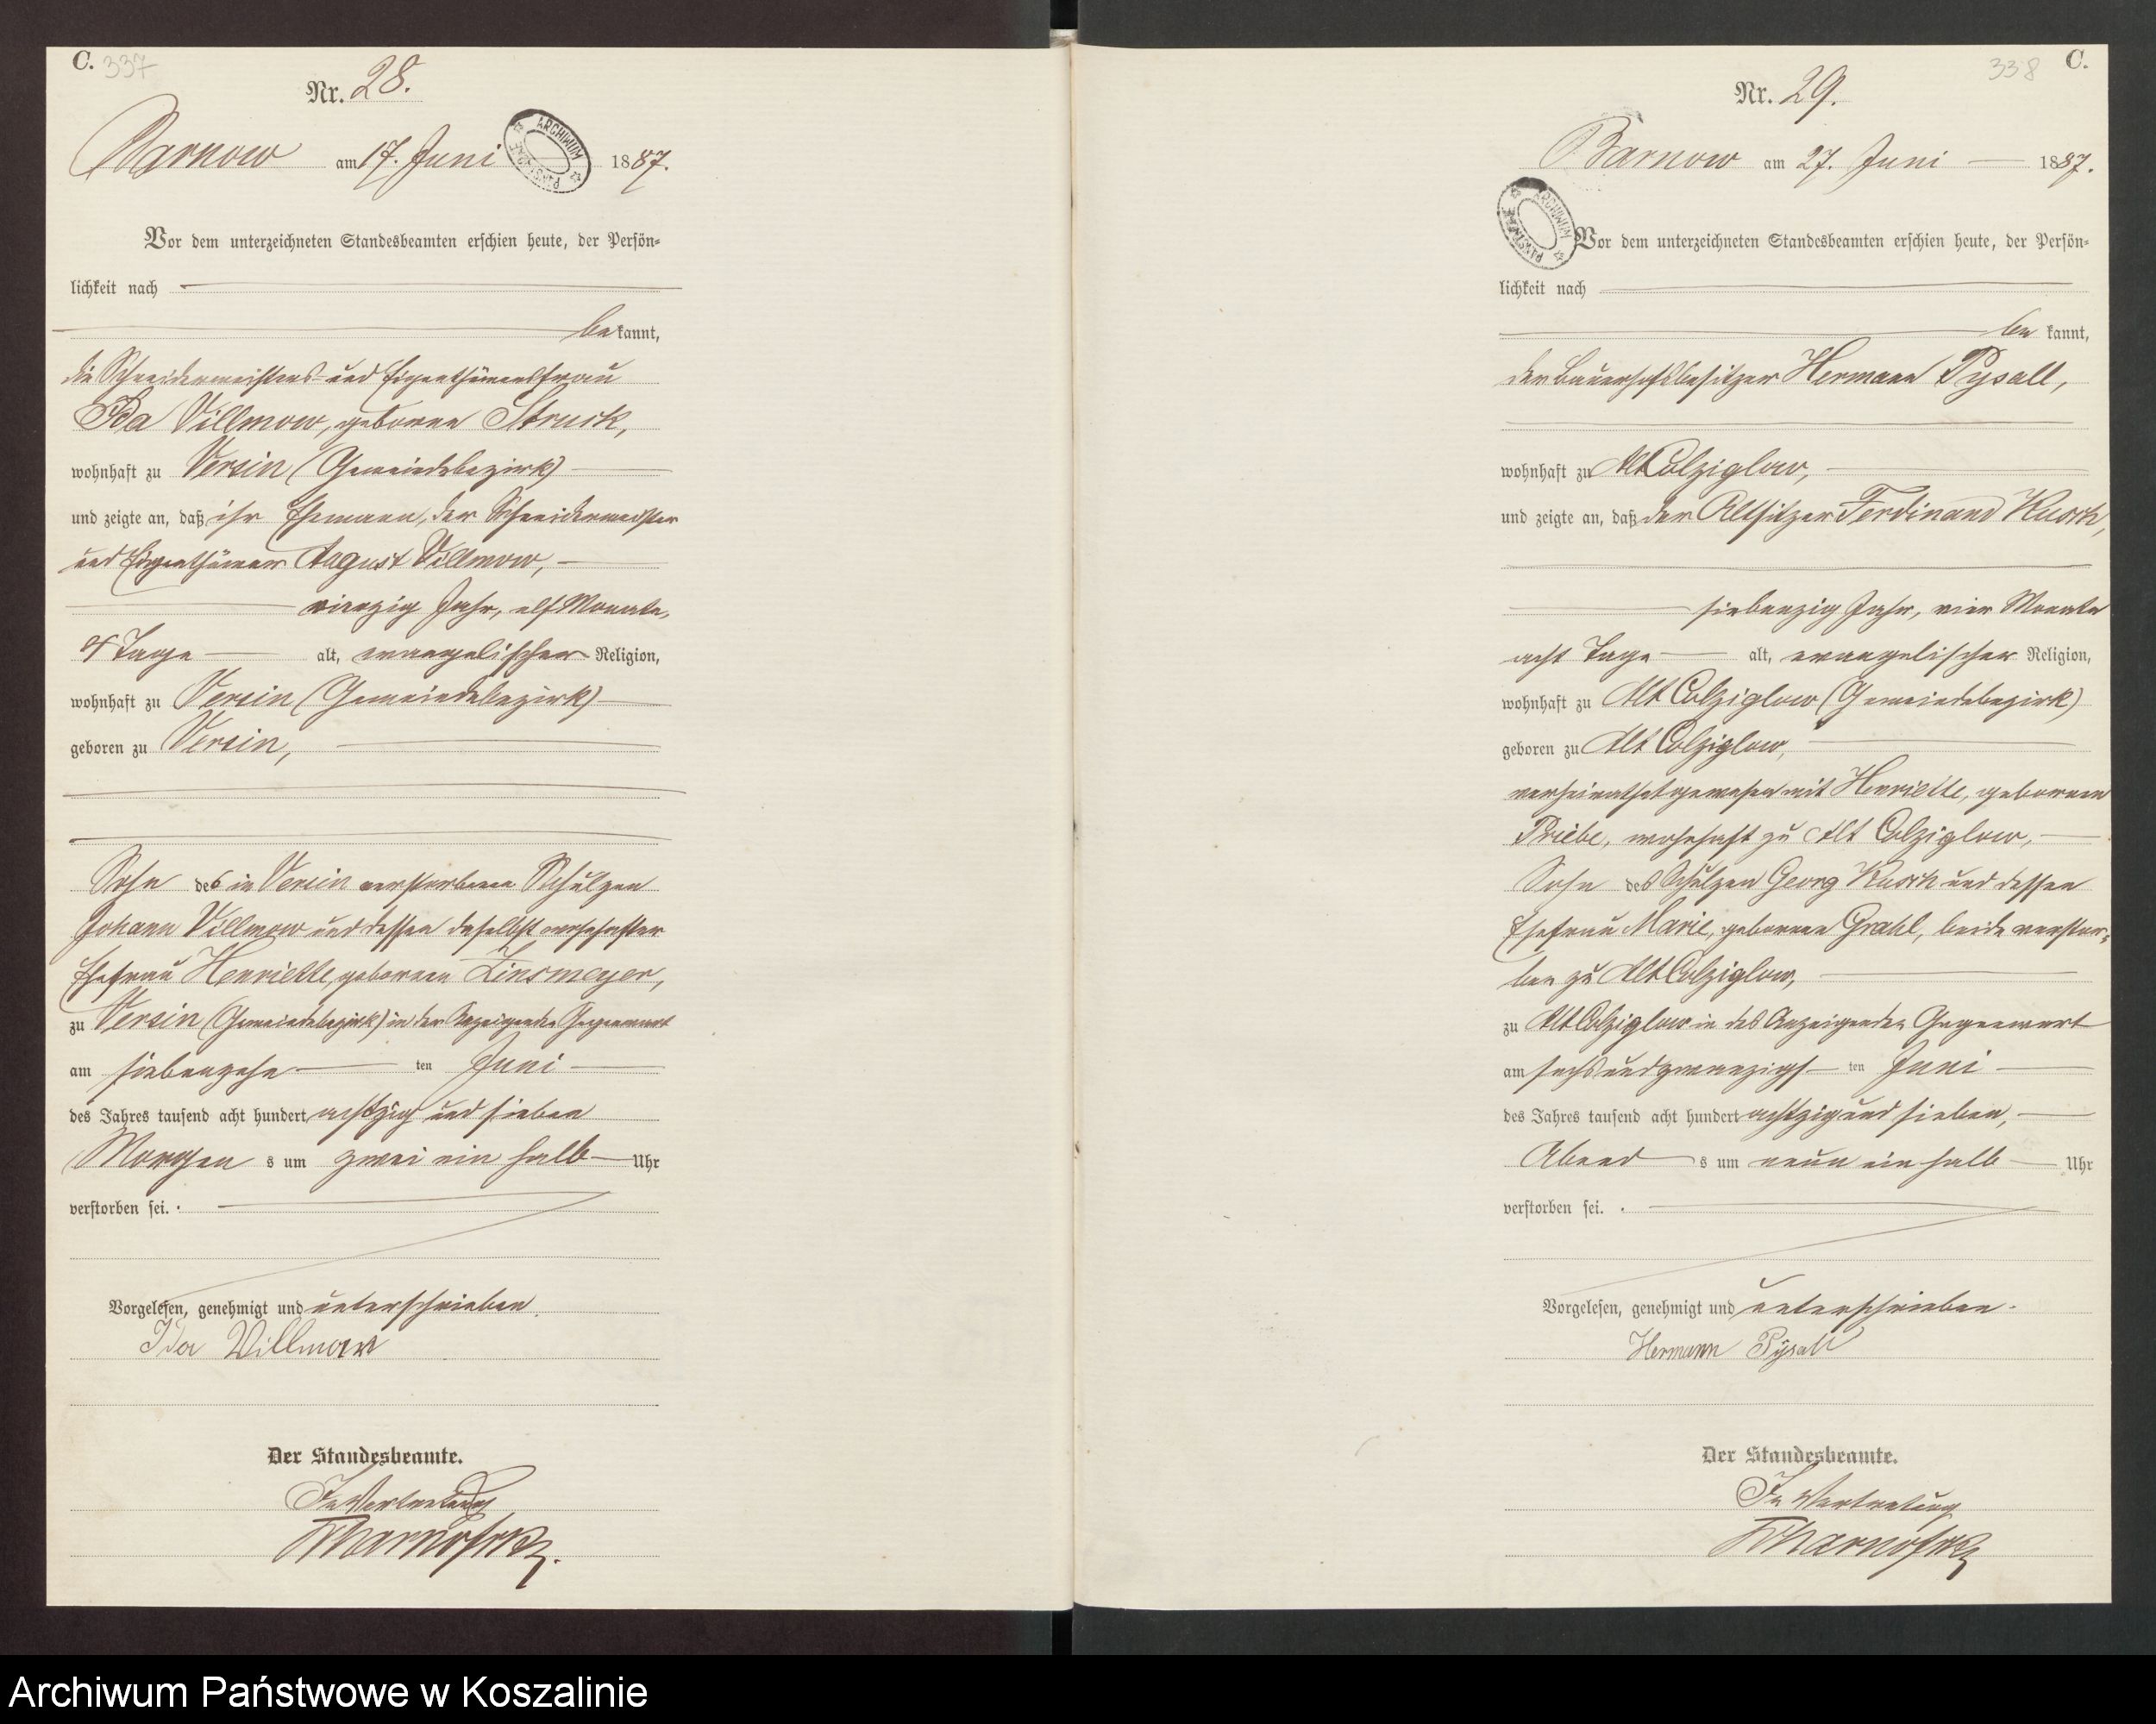 C. 337
Nr. 28.
Barnow am 17. Juni 1887.
ARCHIWUM PAŃSTWOWE
Vor dem unterzeichneten Standesbeamten erschien heute, der Persön-
lichkeit nach
be kannt,
die Schneidermeisters- und Eigenthümersfrau
Ida Villmow, geborene Struck,
wohnhaft zu Versin (Gemeindebezirk)
und zeigte an, daß ihr Ehemann, der Schneidermeister
und Eigenthümer August Villmow,
vierzig Jahr, elf Monate,
Tage alt, evangelischer Religion,
wohnhaft zu Versin (Gemeindebezirk)
geboren zu Versin,
Sohn des in Versin verstorbenen Schulzen
Johann Villmow und dessen daselbst wohnhafter
Ehefrau Henriette, geborenen Zinsmeyer,
zu Versin (Gemeindebezirk) in der Anzeigenden Gegenwart
am siebenzehn ten Juni
des Jahres tausend acht hundert achtzig und sieben
Morgen s um zwei ein halb Uhr
verstorben sei.
Vorgelesen, genehmigt und unterschrieben.
Ida Villmow
Der Standesbeamte.
In Vertretung
338 C.
Nr. 29.
Barnow am 27. Juni 1887.
ARCHIWUM PAŃSTWOWE
Vor dem unterzeichneten Standesbeamten erschien heute, der Persön-
lichkeit nach
be kannt,
der Bauerhofsbesitzer Hermann Pysall,
wohnhaft zu Alt Colziglow,
und zeigte an, daß der Altsitzer Ferdinand Kusch,
siebenzig Jahr, vier Monate
acht Tage alt, evangelischer Religion,
wohnhaft zu Alt Colziglow (Gemeindebezirk)
geboren zu Alt Colziglow,
verheirathet gewesen mit Henriette, geborenen
Priebe, wohnhaft zu Alt Colziglow,
Sohn des Schulzen Georg Kusch und dessen
Ehefrau Marie, geborenen Grahl, beide verstor-
ben zu Alt Colziglow,
zu Alt Colziglow in des Anzeigenden Gegenwart
am sechsundzwanzigs ten Juni
des Jahres tausend acht hundert achtzig und sieben,
Abend s um neun ein halb Uhr
verstorben sei.
Vorgelesen, genehmigt und unterschrieben.
Hermann Pysall
Der Standesbeamte.
In Vertretung
Archiwum Państwowe w Koszalinie